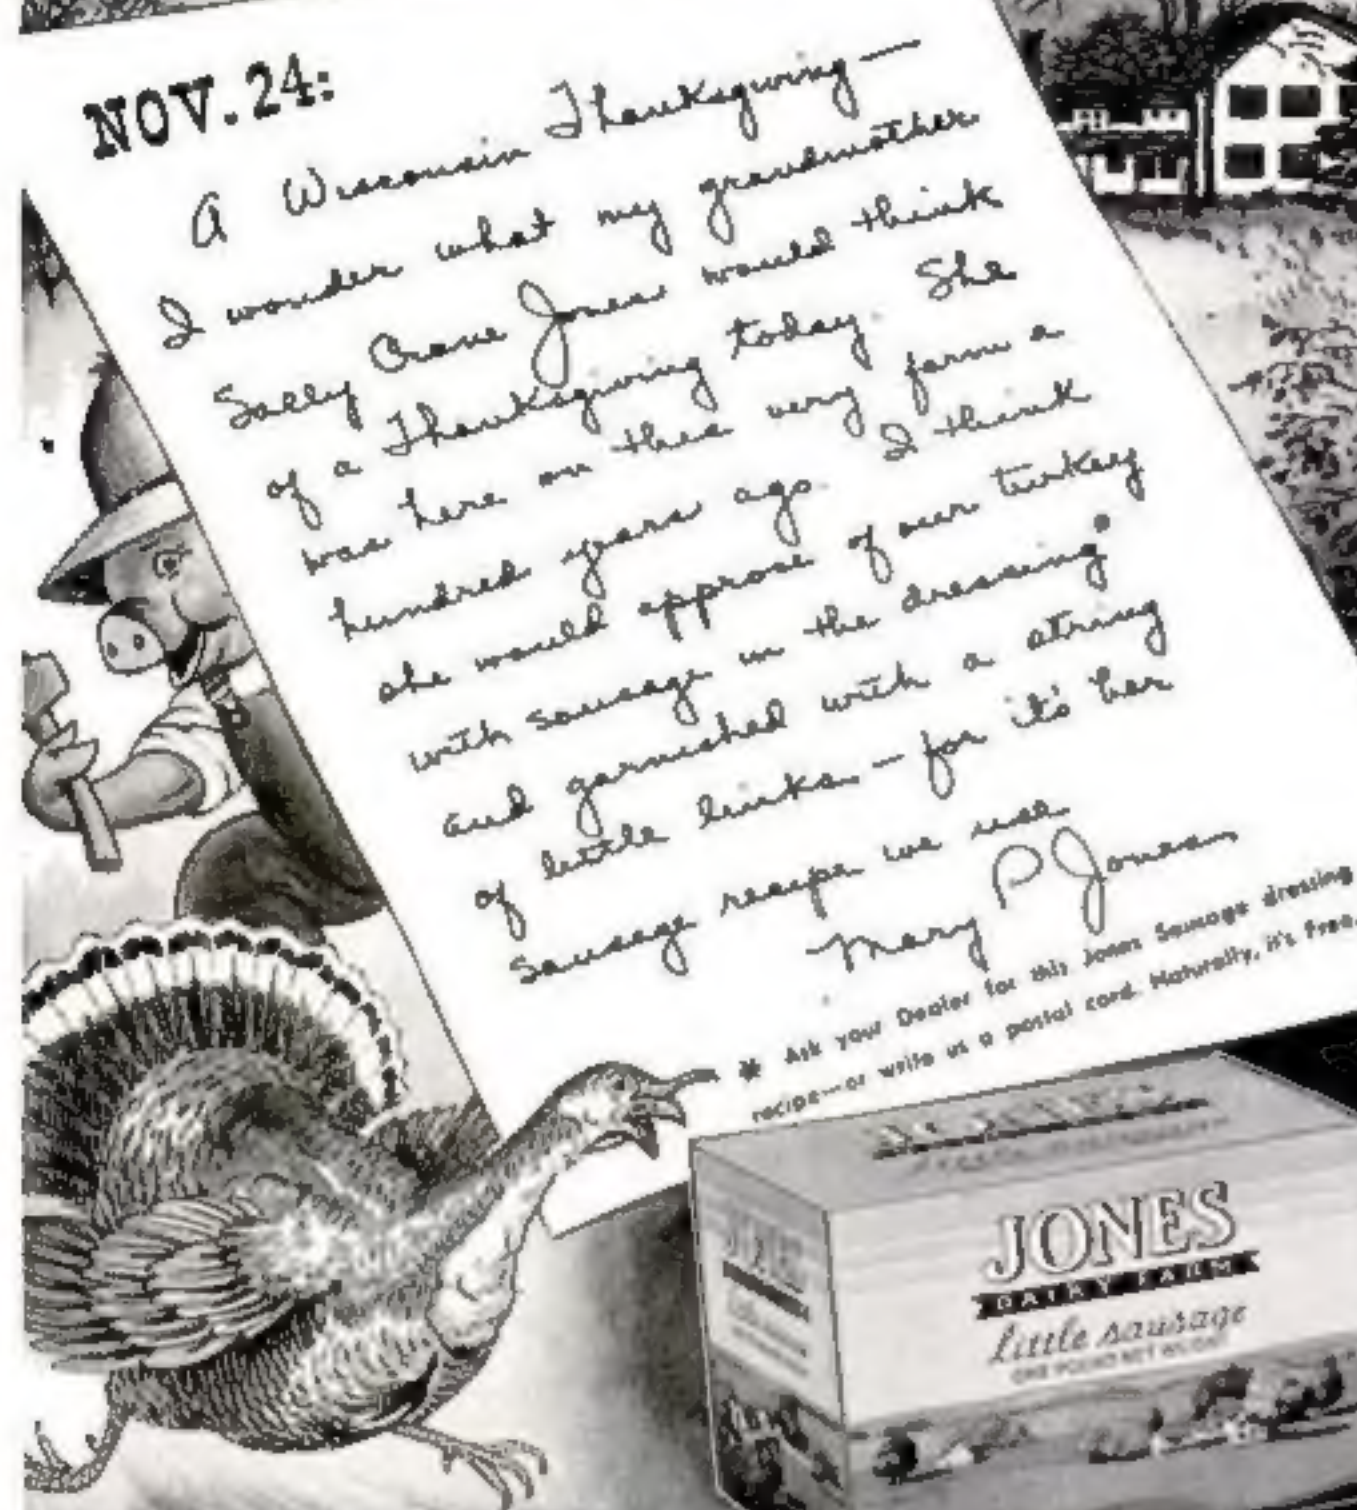 NOV. 24:
A Wisconsin Thanksgiving —
I wonder what my grandmother
Sally Crane Jones would think
of a Thanksgiving today. She
was here on this very farm a
hundred years ago. I think
she would approve of our turkey
with sausage in the dressing*
and garnished with a string
of little links — for it's her
sausage recipe we use.
Mary P Jones
* Ask your Dealer for this Jones Sausage dressing
recipe—or write us a postal card. Naturally, it's free.
JONES
DAIRY FARM
little sausage
ONE POUND NET WEIGHT
JONES